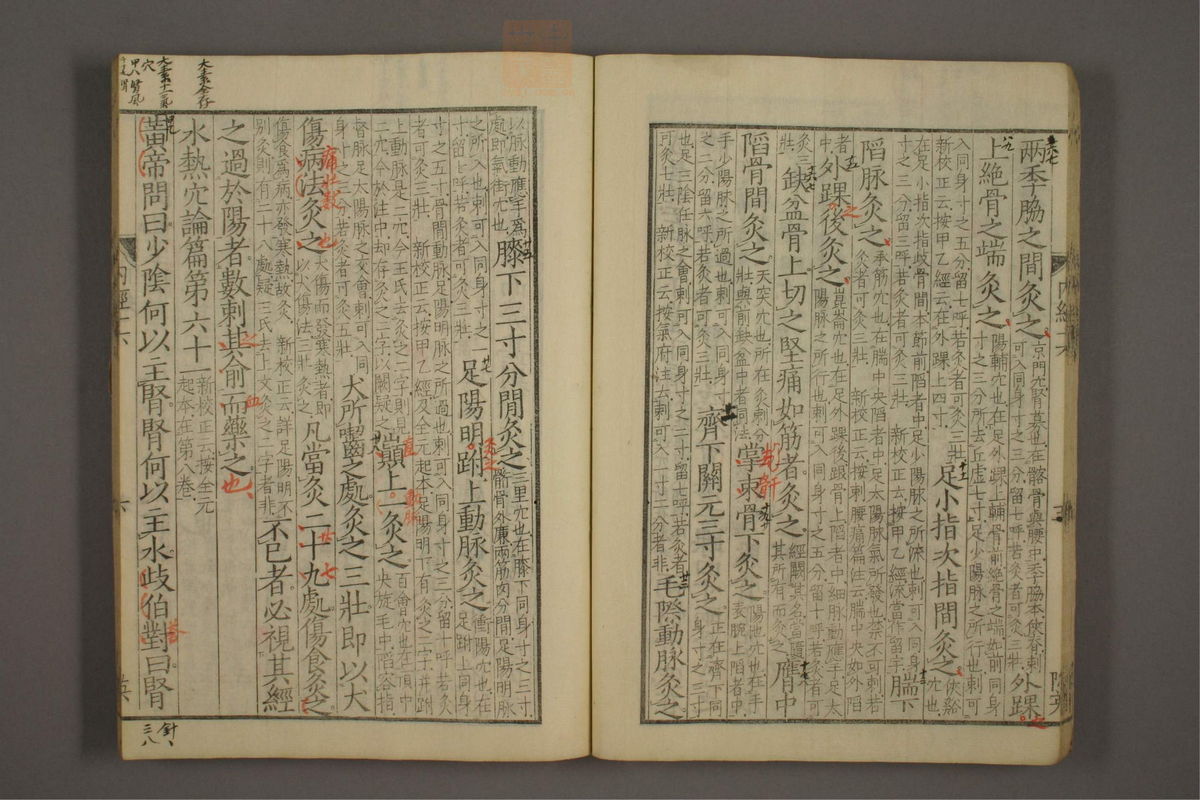 兩季脇之間灸之
京門穴腎募也在髂骨與腰中季脇本俠脊刺
可入同身寸之三分留七呼若灸者可灸三壯
外踝
上絶骨之端灸之
陽輔穴也在足外踝上輔骨前絶骨之端如前同身
寸之三分所去丘虛七寸足少陽脈之所行也刺可
入同身寸之五分留七呼若灸者可灸三壯
新校正云按甲乙經云在外踝上四寸
足小指次指間灸之
俠谿
穴也
在足小指次指歧骨間本節前陷者中足少陽脈之所流也刺可入同身
寸之三分留三呼若灸者可灸三壯 新校正云按甲乙經流當作留字
腨下
陷脈灸之
承筋穴也在腨中央陷者中足太陽脈氣所發也禁不可刺若
灸者可灸三壯 新校正云按刺腰痛篇注云腨中央如外陷
者
中
外踝後灸之
崑崙穴也在足外踝後跟骨上陷者中細脈動應手足太
陽脈之所行也刺可入同身寸之五分留十呼若灸者可
灸三
壯
缺盆骨上切之堅痛如筋者灸之
經闕其名當隨
其所有而灸之
膺中
陷骨間灸之
天突穴也所在灸刺分
壯與前缺盆中者同法
掌束骨下灸之
陽池穴也在手
表腕上陷者中
手少陽脈之所過也刺可入同身寸
之二分留六呼若灸者可灸三壯
齊下關元三寸灸之
正在齊下同
身寸之三寸
足三陰任脈之會刺可入同身寸之二寸留七呼若灸者
可灸七壯 新校正云按氣府注云刺可入一寸二分者非
毛際動脈灸之
以脈動應手爲
處即氣街穴也
膝下三寸分間灸之
三里穴也在膝下同身寸之三寸
䯒骨外廉兩筋肉分間足陽明脈
之所入也刺可入同身寸之一
寸留七呼若灸者可灸三壯
足陽明跗上動脈灸之
衝陽穴也在
足跗上同身
寸之五寸骨間動脈足陽明脈之所過也刺可入同身寸之三分留十呼若灸
者可灸三壯 新校正云按甲乙經及全元起本足陽明下有灸之二字并跗
上動脈是二穴今王氏去灸之二字則是一
穴今於注中却存灸之二字以闕疑之
巔上一灸之
百會穴也在頂中
央旋毛中陷容指
督脈足太陽脈之交會刺可入同
身寸之三分若灸者可灸五壯
犬所齧之處灸之三壯即以犬
傷病法灸之
犬傷而發寒熱者即
以犬傷法三壯灸之
凡當灸二十九處傷食灸之
傷食爲病亦發寒熱故灸 新校正云詳足陽明不
別灸則有二十八處疑王氏去上文灸之二字者非
不已者必視其經
之過於陽者數刺其俞而藥之
水熱穴論篇第六十一
新校正云按全元
起本在第八卷
黃帝問曰少陰何以主腎腎何以主水歧伯對曰腎